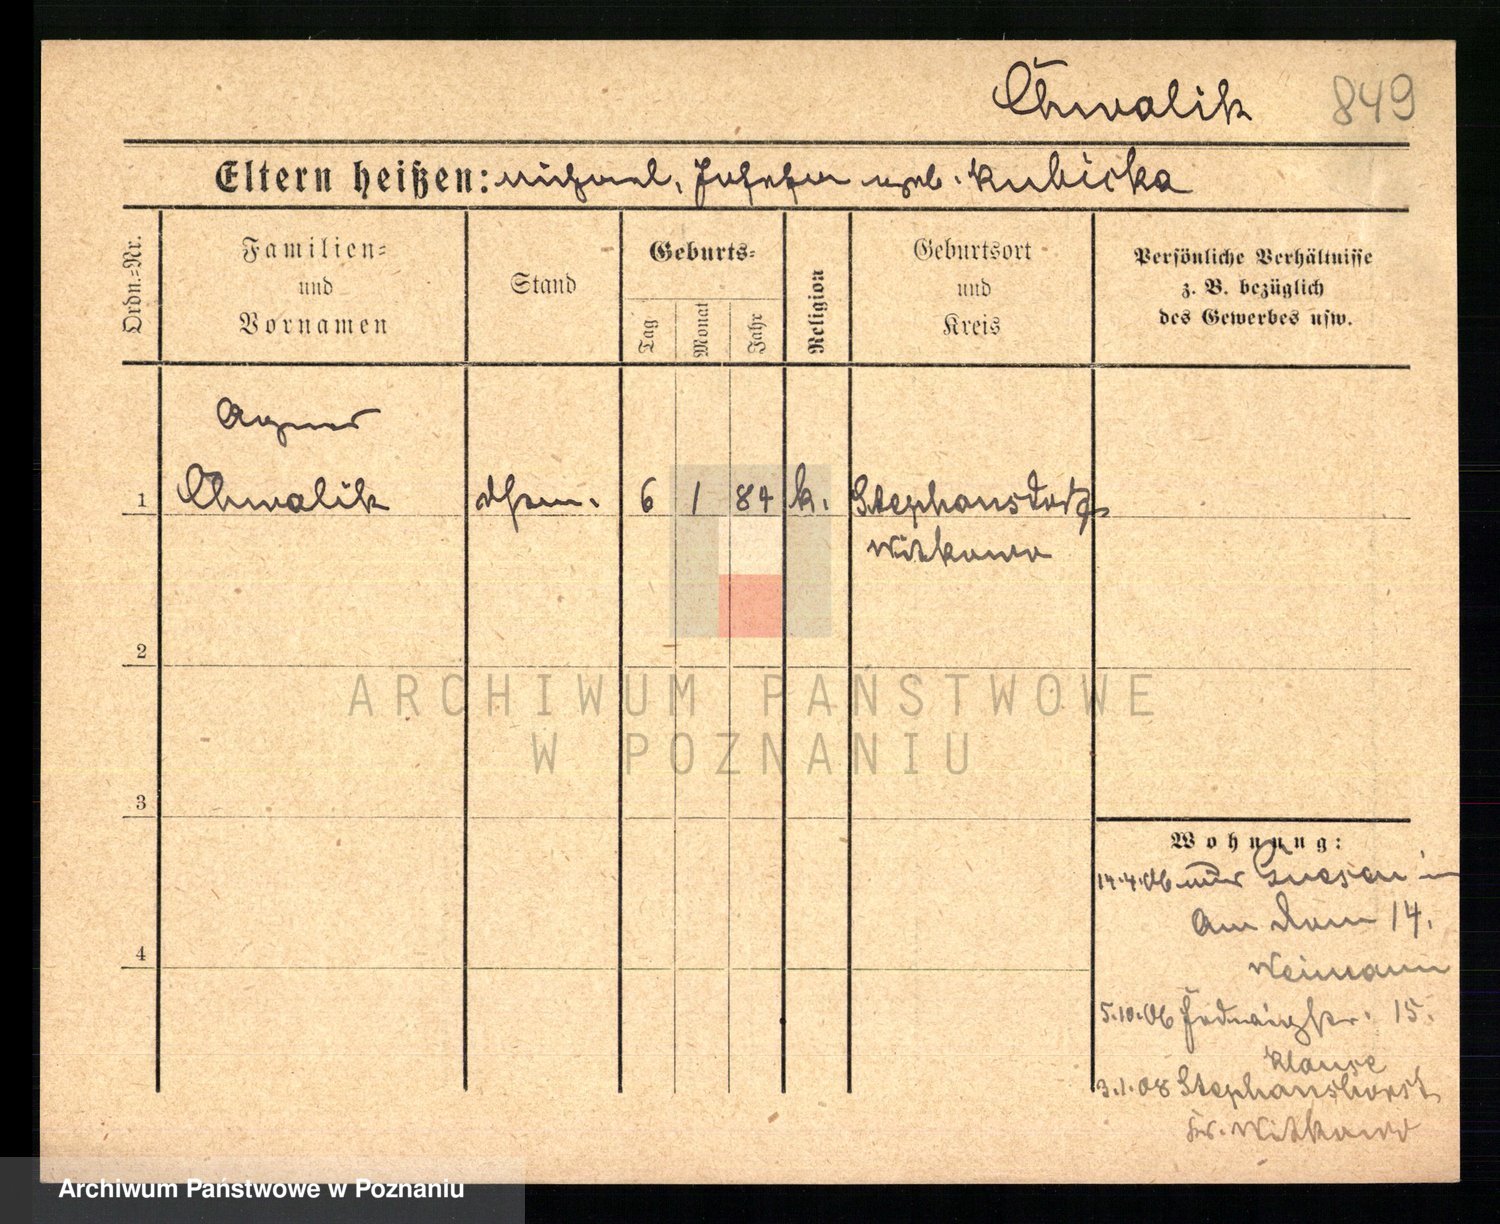 Chwalik 849
Eltern heißen: Michael, Josefa geb. Kubicka
Ordn.=Nr.
Familien=
und
Vornamen
Stand
Geburts=
Tag
Monat
Jahr
Religion
Geburtsort
und
Kreis
Persönliche Verhältnisse
z. B. bezüglich
des Gewerbes usw.
Agnes
1 Chwalik 6 1 84 k. Stephansdorf
Witkowo
2
ARCHIWUM PAŃSTWOWE
W POZNANIU
3
Wohnung:
14.4.06 aus Gnesen in
Am Dom 14.
Weimann
4
5.10.06 Hedwigstr. 15.
Klause
3.1.08 Stephanshorst
Kr. Witkowo
Archiwum Państwowe w Poznaniu